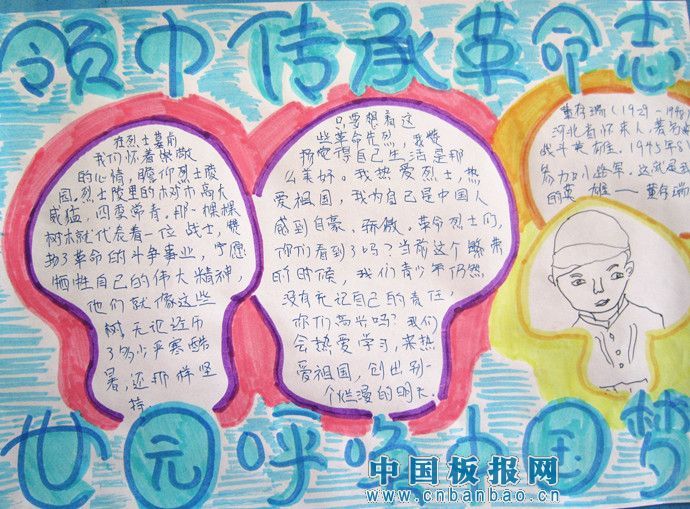 领巾传承革命志
在烈士墓前
我们怀着崇敬
的心情,瞻仰烈士陵
园。烈士陵里的树木高大
威猛,四季常青,那一棵棵
树木就代表着一位战士,赞
扬了革命的斗争事业,宁愿
牺牲自己的伟大精神,
他们就像这些
树,无论经历
了多少严寒酷
暑,还那样坚
持。
只要想着这
些革命先烈,我赞
扬觉得自己生活是那
么美好。我热爱烈士,热
爱祖国,我为自己是中国人
感到自豪、骄傲。革命烈士们,
你们看到了吗?当前这个
的时候,我们青少年仍然
没有忘记自己的责任,
你们高兴吗?我们
会热爱学习,来热
爱祖国,创出别一
个烂漫的明天。
董存瑞(1929-1948
河北省怀来人,著名
战斗英雄。1945年8
参加八路军。这就是我
的英雄——董存瑞
世园呼唤中国梦
中国板报网
www.cnbanbao.cn